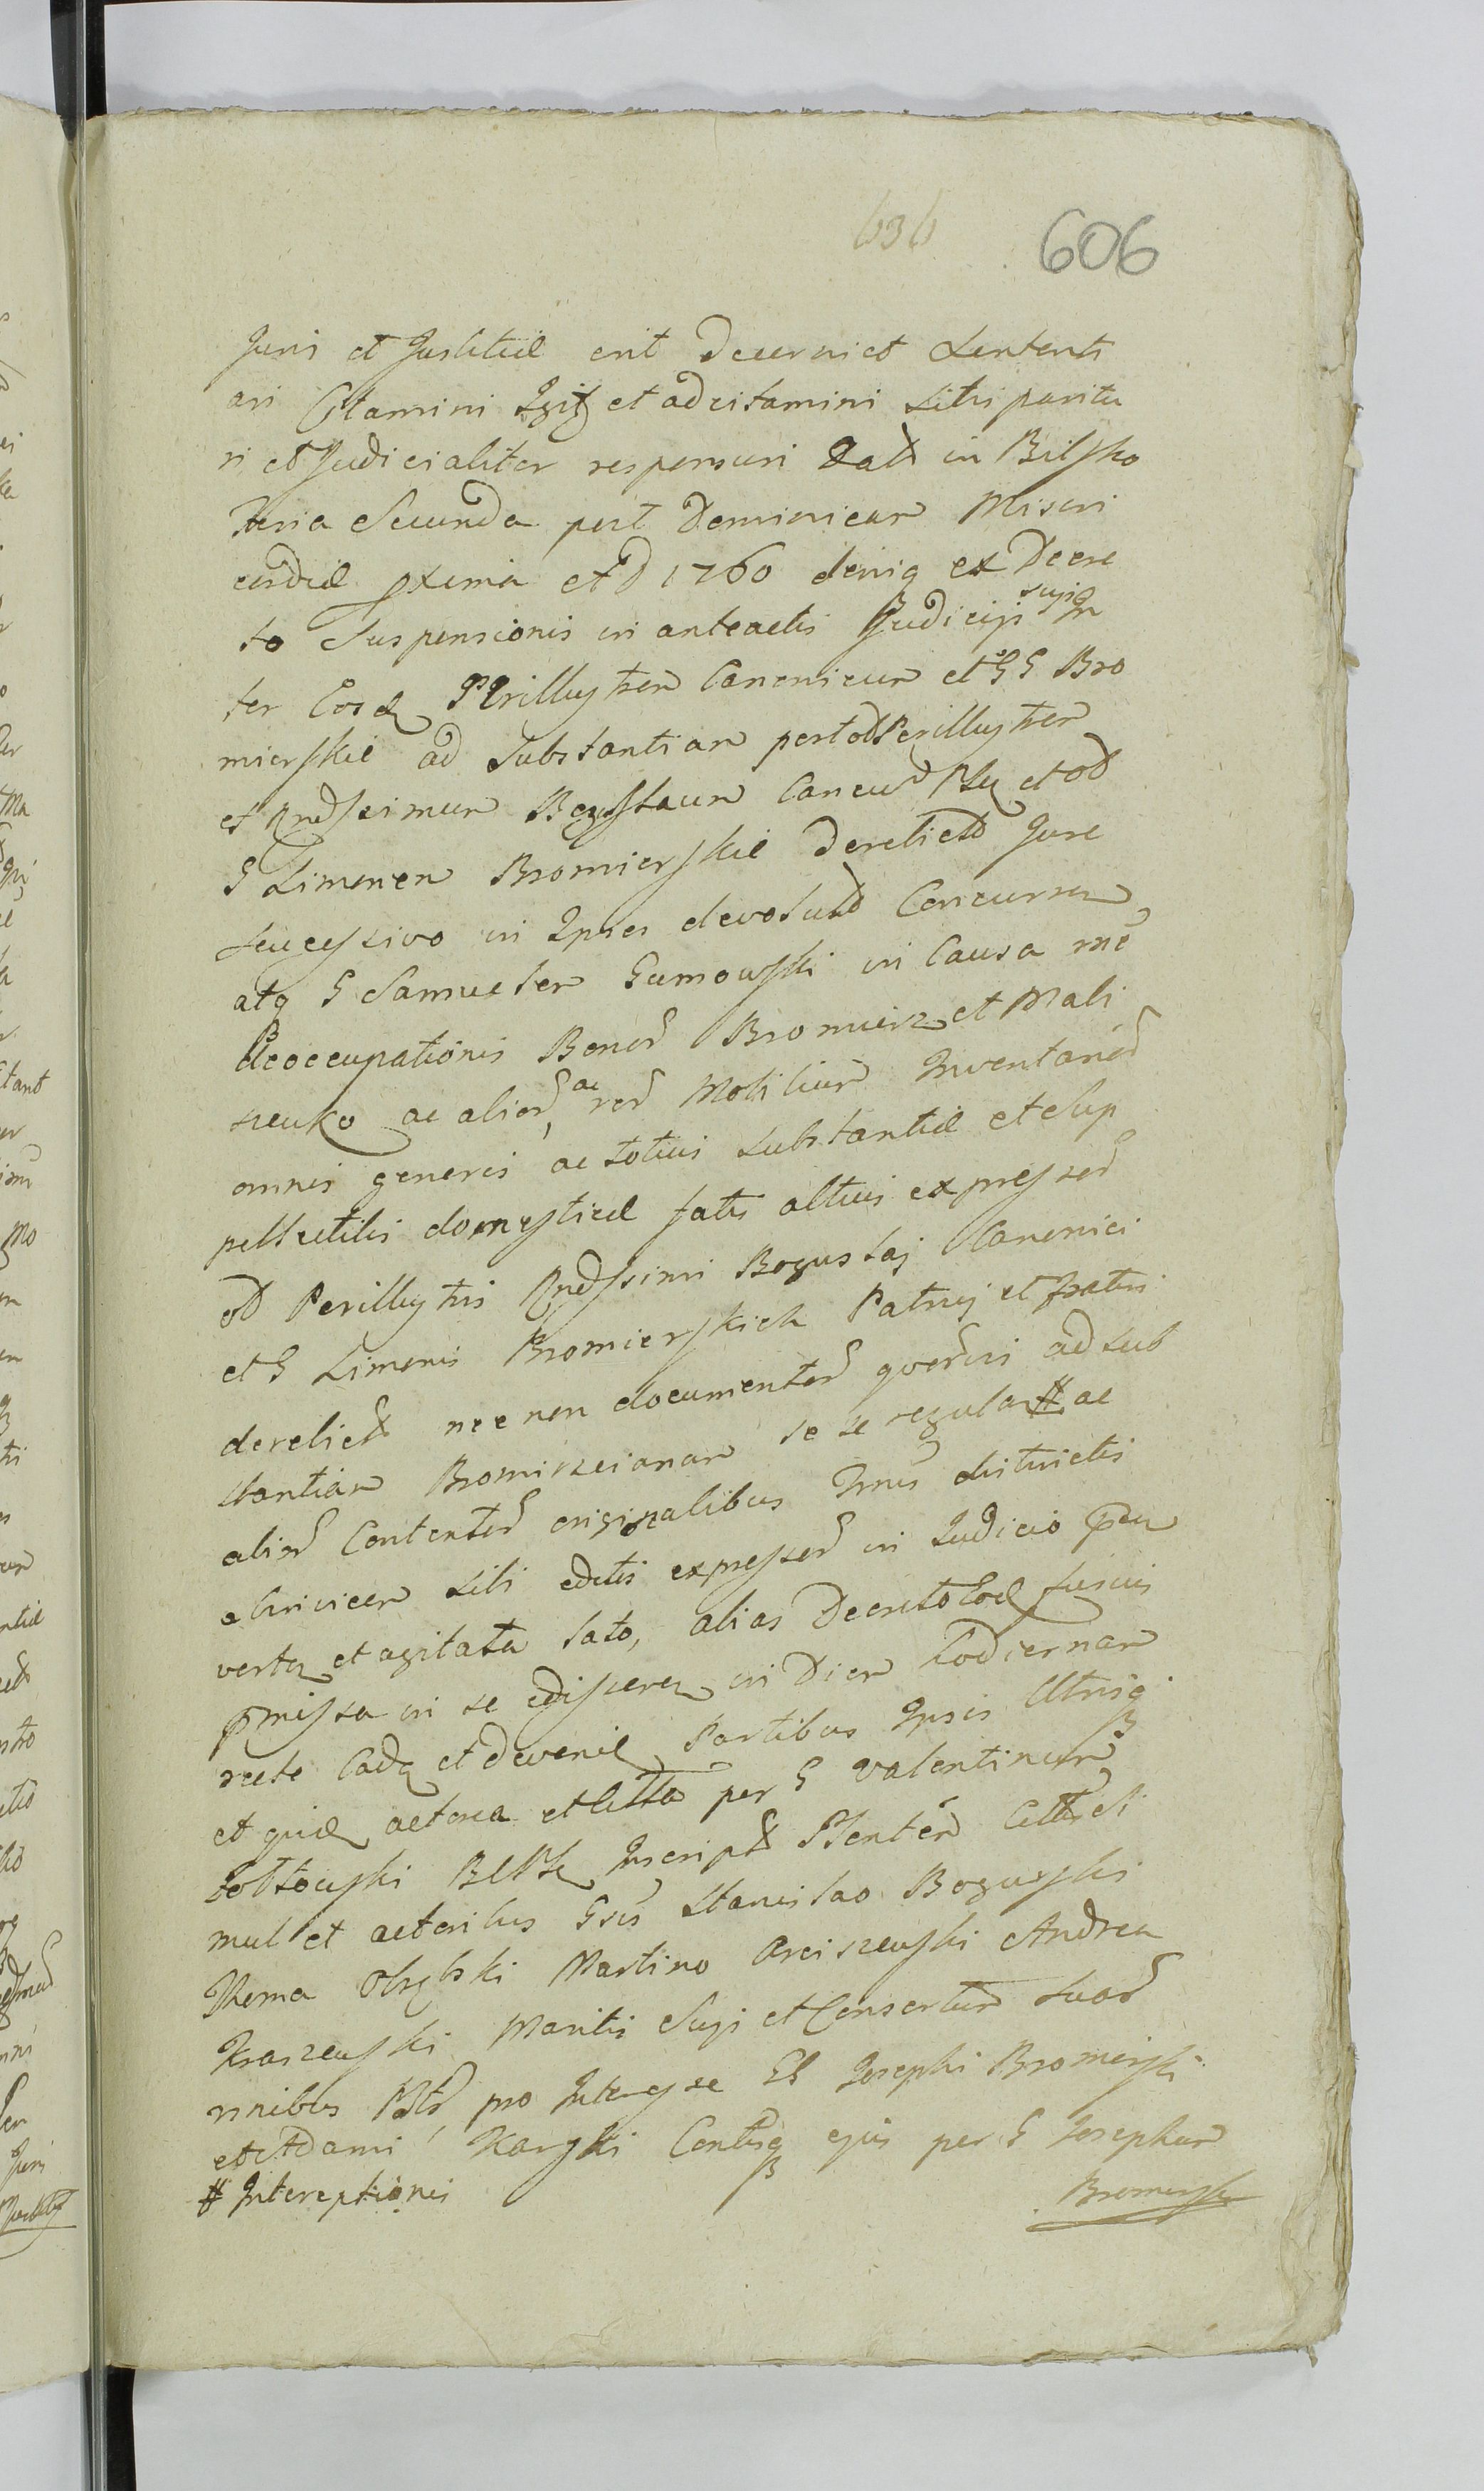 636 606
Juris et Justitiæ erit decerni et Sententi
ari Citamini Igit et adcitamini Litis paritu
ri et Judicialiter responsuri Dat in Bilsko
Feria Secunda post Dominicam Miseri
cordiæ pxima A D 1760 deniq ex Decre
to Suspensionis in anteactis Judicijs suijs In
ter Eosd Perillustrem Canonicum et G G Bro
mierskie ad Substantiam post od Perillustrem
et Rndssimum Bogusłaum Cancum Plu et od
G Simonem Bromierskie derelict Jure
Successivo in Ipsos devolut Concursum,
atq G Samuelem Gumowski in Causa rne
deoccupationis Bonor Bromierz et Mali
szewko ac alior, ac rer Mobilium Inventarior
omnis generis ac totius Substantiæ et Sup
pellectilis domesticæ fatis altius expressor
od Perillustris Rndssimi Bogusłaj Canonici
et G Simonis Bromierskich Patruj et Fratris
derelict nec non documentor quorvis ad Sub
stantiam Bromirscianam se se regulan # ac
alior Contentor originalibus Trnis districtis
ab invicem Sibi editis expressor in Judicio con
verten et agitata lato, alias Decreto Eod fusius
pmissa in se edisseren in Diem hodiernam
recte Cadn et devenien Partibus Ipsis Utrisq
et quid actorea et citta per G Valentinum
Żołtowski BCPłu Inscript Plenten Citta si
mul et actoribus Grsis Stanislao Boguski
Thoma Obrębski Martino Arciszewski Andrea
Kraszewski Maritis Suij et Consortum Suar
nnibus Ptr pro Interesse Gs Josephi Bromirski
et Adami Karski Contisq ejus per G Josephum
# Interceptionis
Bromirski